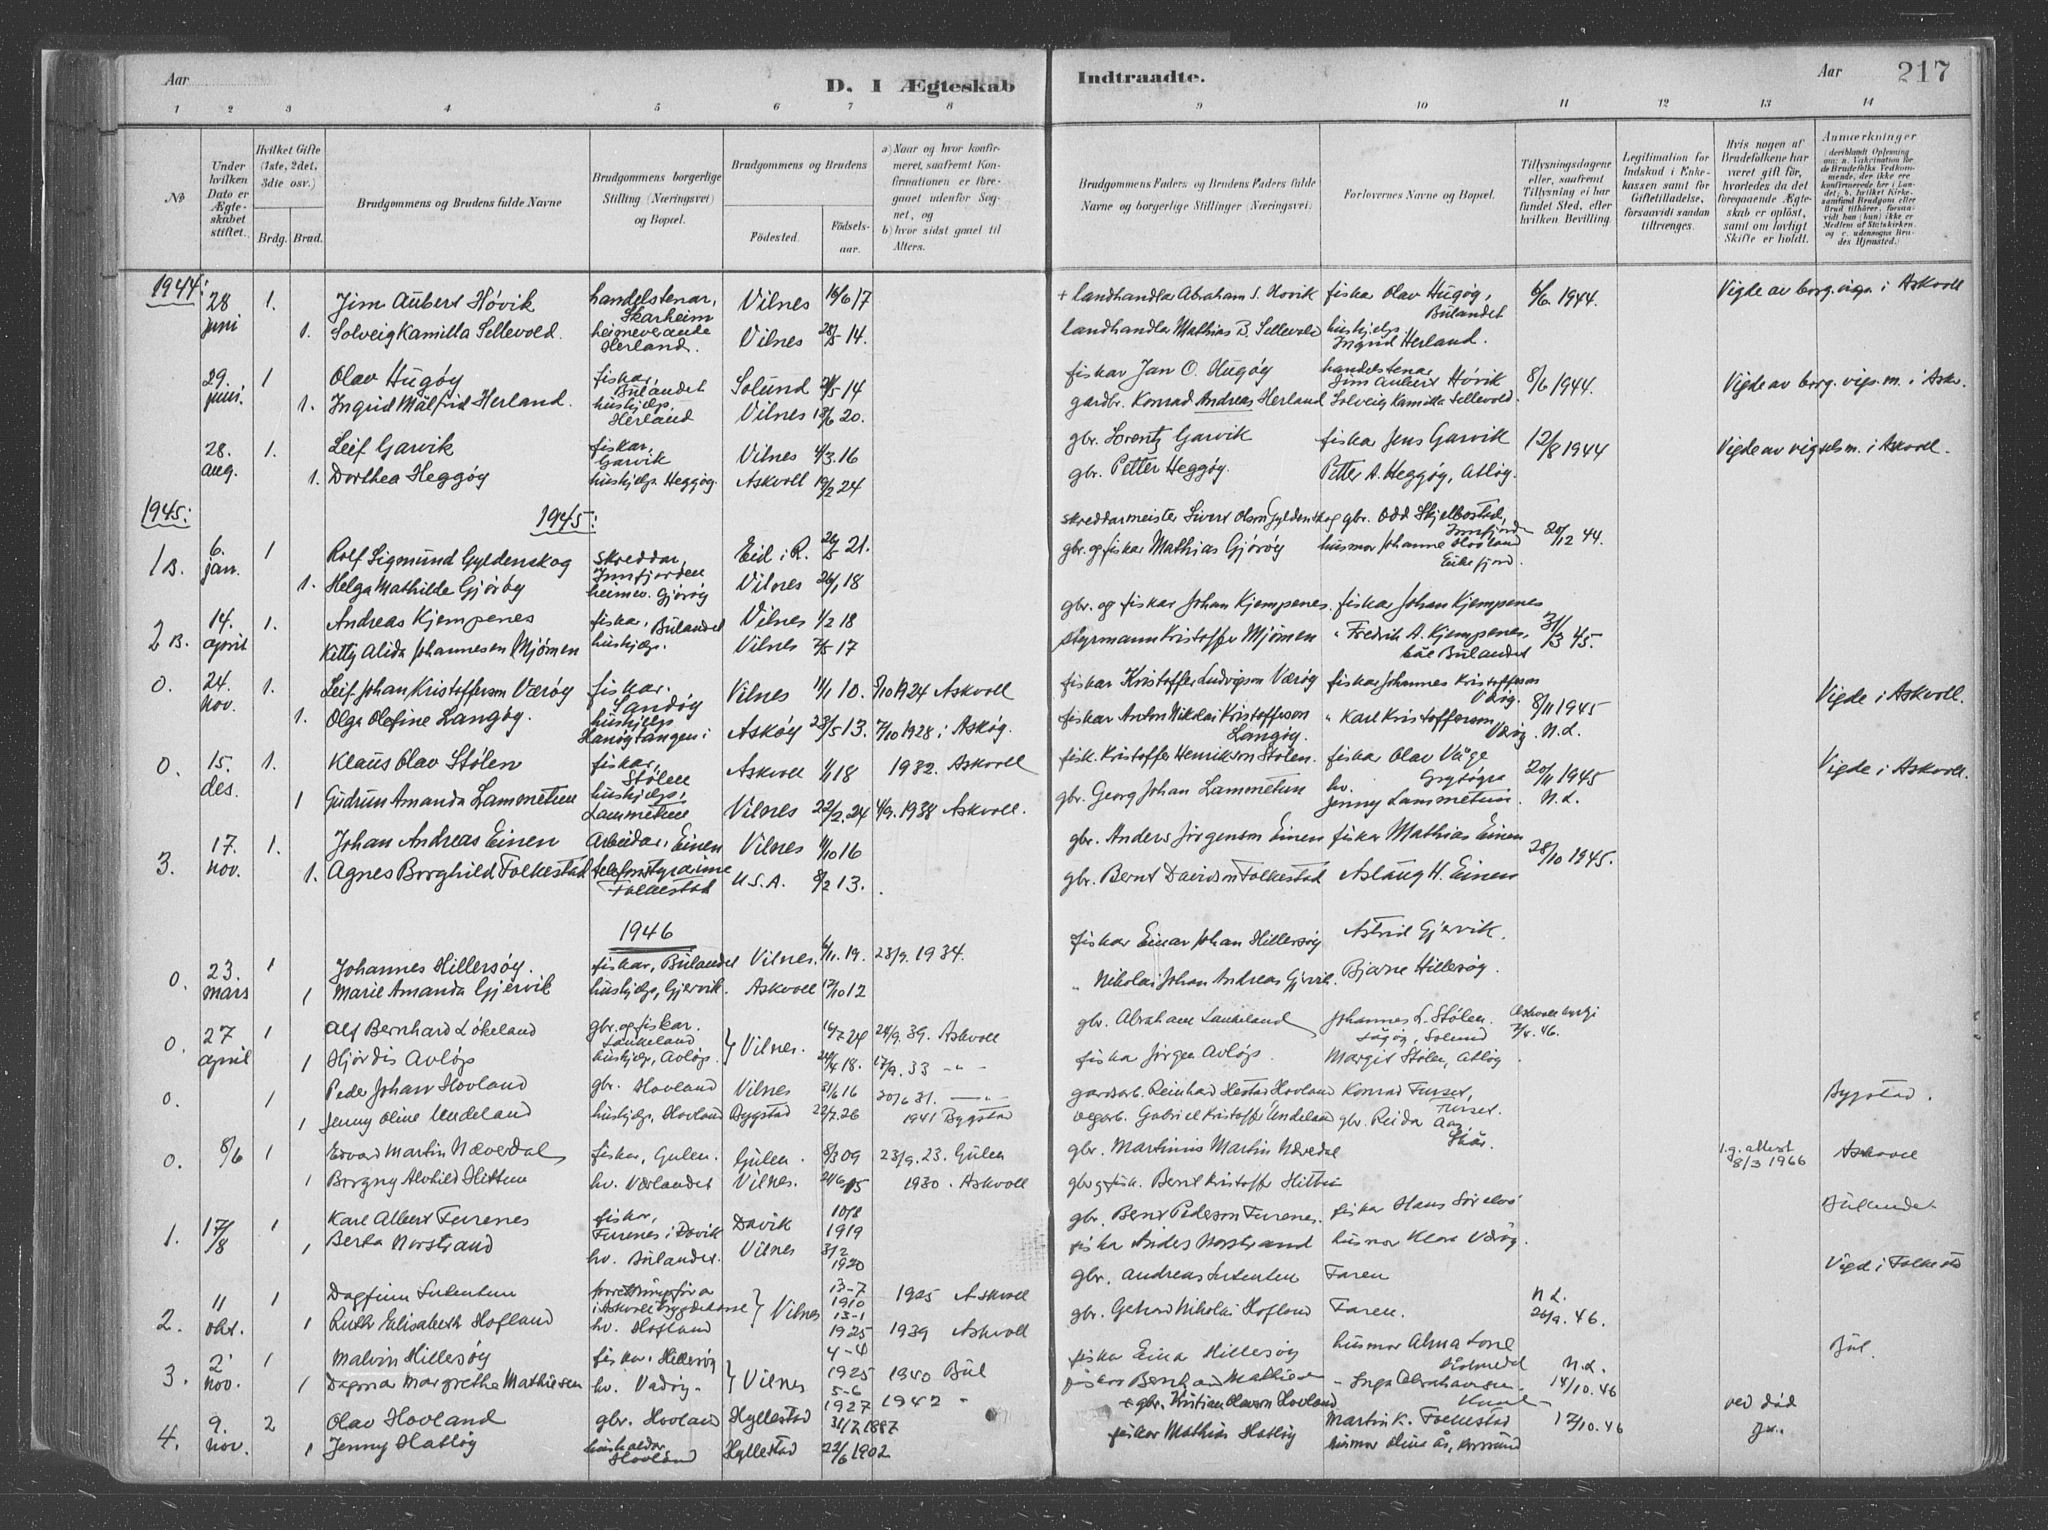 Aar
D. I Ægteskab
Indtraadte.
Aar 217
1 2 3 4 5 6 7 8 9 10 11 12 13 14
No
Under hvilken Dato er Ægteskabet stiftet.
Hvilket Gifte (1ste, 2det, 3die osv.)
Brdg. Brud.
Brudgommens og Brudens fulde Navne
Brudgommens borgerlige Stilling (Næringsvei) og Bopæl.
Brudgommens og Brudens
Fødested.
Fødselsaar.
a) Naar og hvor konfirmeret, saafremt Konfirmationen er foregaaet udenfor Sognet, og
b) hvor sidst gaaet til Alters.
Brudgommens Faders og Brudens Faders fulde Navne og borgerlige Stillinger (Næringsvei).
Forlovernes Navne og Bopæl.
Tillysningsdagene eller, saafremt Tillysning ei har fundet Sted, efter hvilken Bevilling
Legitimation for Indskud i Enkekassen samt for Giftetilladelse, forsaavidt saadan tiltrænges.
Hvis nogen af Brudefolkene har været gift, hvorledes da det foregaaende Ægteskab er opløst, samt om lovligt Skifte er holdt.
Anmærkninger (deriblandt Oplysning om: a. Vakcination for de Brudefolks Vedkommende, der ikke ere konfirmerede her i Landet; b. hvilket Kirkesamfund Brudgom eller Brud tilhører, forsaavidt han (hun) ikke er Medlem af Statskirken, og c. udensogns Brudes Hjemsted.)
1944:
28 juni 1. Jim Aubert Hovik handelstenar, Skarheim Vilnes 16/6 17 + landhandlar Abraham S. Hovik fiskar Olav Hugøy, Bulandet 6/6 1944. Vigde av borg. vigs. i Askvoll
1. Solveig Kamilla Sellevold. heimeverande Herland. Vilnes 28/5 14. landhandlar Mathias B. Sellevold hushjelp Ingrid Herland.
29. juni. 1 Olav Hugøy fiskar, Bulandet Solund 21/5 14 fiskar Jan O. Hugøy handelstenar Jim Aubert Hovik 8/6 1944. Vigde av borg. vigs. m. i Askv.
1. Ingrid Målfrid Herland. hushjelp. Herland Vilnes 18/6 20. gardbr. Konrad Andreas Herland Solveig Kamilla Sellevold.
28. aug. 1. Leif Garvik fiskar, Garvik Vilnes 4/3. 16 gbr. Lorentz Garvik fiskar Jens Garvik 12/8 1944 Vigde av vigselsm. i Askvoll.
1. Dorthea Heggøy hushjelp. Heggøy. Askvoll 19/2 24 gbr. Petter Heggøy. Petter A. Heggøy, Atløy.
1945: 1945:
1 B. 6. jan. 1 Rolf Sigmund Gyldenskog skreddar, Innfjorden Eid i R. 21. skreddarmeister Sivert Olsen Gyldenskog gbr. Odd Skjelbostad, Innfjorden 20/12 44.
1. Helga Mathilde Gjørøy heimev. Gjørøy Vilnes 26/1 18 gbr. og fiskar Mathias Gjørøy husmor Johanne Hovland Eikefjord.
2 B. 14. april 1. Andreas Kjempenes fiskar, Bulandet Vilnes 1/2 18 gbr. og fiskar Johan Kjempenes. fiskar Johan Kjempenes 31/3 45.
Kitty Alida Johannesen Mjømen hushjelp. Vilnes 7/5 17 styrmann Kristoffer Mjømen " Fredrik A. Kjempenes, båe Bulandet
0. 24. nov. 1. Leif Johan Kristoffersen Værøy fiskar. Sandøy Vilnes 11/1 10. 5/10 1924 Askvoll fiskar Kristoffer Ludvigson Værøy fiskar Johannes Kristoffersen Værøy. 8/11 1945 Vigde i Askvoll.
1. Olga Olefine Langøy. hushjelp Hanøytangen i Askøy 23/5 13. 7/10 1928 i Askøy. fiskar Anton Nikolai Kristoffersen Langøy. " Karl Kristoffersen Værøy. N.L.
0. 15. des. 1. Klaus Olav Stølen fiskar, Stølen Askvoll 1/1 18 1932. Askvoll fisk. Kristoffer Henrikson Stølen. fiskar Olav Våge 20/11 1945 Vigde i Askvoll.
1 Gudrun Amanda Lammetun hushjelp, Lammetun Vilnes 22/2. 24 4/9. 1938 Askvoll. gbr. Georg Johan Lammetun hv. Jenny Lammetun. N.L.
3. 17. nov. 1. Johan Andreas Einen Arbeidar, Einen Vilnes 11/10 16 gbr. Anders Jørgenson Einen fiskar Mathias Einen 28/10 1945.
1. Agnes Borghild Folkestad telefonstyrarinne Folkestad U.S.A. 8/2 13. gbr. Bernt Davidson Folkestad Aslaug H. Einen
1946
0. 23. mars 1 Johannes Hillersøy. fiskar, Bulandet Vilnes. 6/11. 19. 23/9. 1934. fiskar Einar Johan Hillersøy Astrid Gjervik.
1 Marie Amanda Gjervik hushjelp, Gjervik. Askvoll 17/10 12 " Nikolai Johan Andreas Gjervik. Bjarne Hillersøy.
0. 27 april 1 Alf Bernhard Lökeland gbr. og fiskar. Laukeland Vilnes. 16/2 24 24/9. 39. Askvoll gbr. Abraham Laukeland Johannes L. Stølen. Solund 7/4. 46.
1 Hjørdis Avløp hushjelp, Avløp. 24/4 18. 17/9. 33 - " - fiskar Jørgen Avløp. Margit Stølen, Atløy
0. 1 Peder Johan Hovland gbr. Hovland Vilnes 31/6 16 30/6 31. - " - gardsarb. Reinhard Hestad Hovland Konrad Furset, Furset. Bygstad.
1 Jenny Oline Undeland hushjelp, Hovland Bygstad 22/7. 26 1941 Bygstad vegarb. Gabriel Kristoffer Undeland gbr. Reidar Aar, Skår.
0. 8/6 1 Edvard Martin Næverdal fiskar, Gulen. Gulen. 8/3 09 23/9. 23. Gulen gbr. Martinius Martin Næverdal l. g. attest 8/3 1966 Askvoll
1 Borgny Alvhild Hittun hv. Værlandet Vilnes. 24/6 15 1930. Askvoll gbr. og fisk. Bernt Kristoffer Hittun
1. 17/8 1 Karl Albert Furenes fiskar, Furenes i Davik Davik 10/8 1919 gbr. Bernt Pederson Furenes. fiskar Hans Sørelvø Bulandet
1 Berta Norstrand hv. Bulandet. Vilnes 31/2 1920 fiskar Anders Norstrand husmor Klara Værøy.
2. 11 okt. 1 Dagfinn Indentun forretningsførar i Askvoll trygdekasse Vilnes 13-7 1910 1925 Askvoll gbr. Andreas Indentun Faren N.L. 26/9. 46. Vigde i Folkestad
1 Ruth Elisabeth Hofland hv. Hofland 13-1 1925 1939 Askvoll gbr. Gerhard Nikolai Hofland Faren.
3. 2. nov. 1 Malvin Hillersøy fiskar, Hillersøy Vilnes 4-4 1925 1940 Bul fiskar Einar Hillersøy husmor Alma Lone N.L. 14/10. 46 Bul.
1 Dagmar Margrethe Mathisen hv. Vadøy - 5-6 1927 1942 " fiskar Bernhard Mathisen - Inga Abrahamsen
4. 9. nov. 2 Olav Hovland gbr. Hovland Hyllestad 31/7 1887 + gbr. Kristian Olavson Hovland Martin K. Folkestad 17/10. 46 ved död
1 Jenny Hatløy husholdar Hovland Hyllestad 22/6 1902 fiskar Mathias Hatløy husmor Oline Ås, Ja.